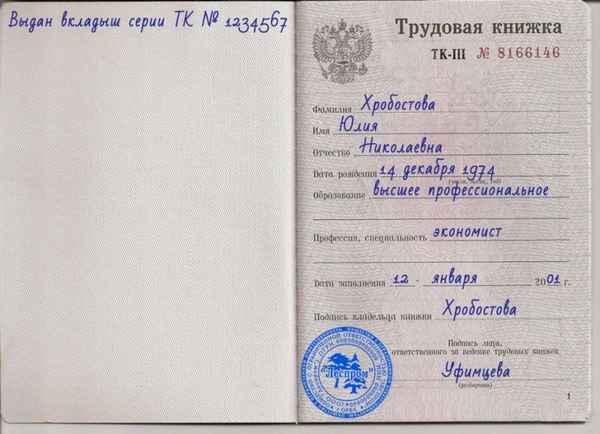 Выдан вкладыш серии ТК № 1234567
Трудовая книжка
ТК-III № 8166146
Фамилия Хробостова
Имя Юлия
Отчество Николаевна
Дата рождения 14 декабря 1974
Образование высшее профессиональное
Профессия, специальность экономист
Дата заполнения 12 - января 2001 г.
Подпись владельца книжки Хробостова
Подпись лица,
ответственного за ведение трудовых книжек
Уфимцева
(разборчиво)
"Леспром"
1